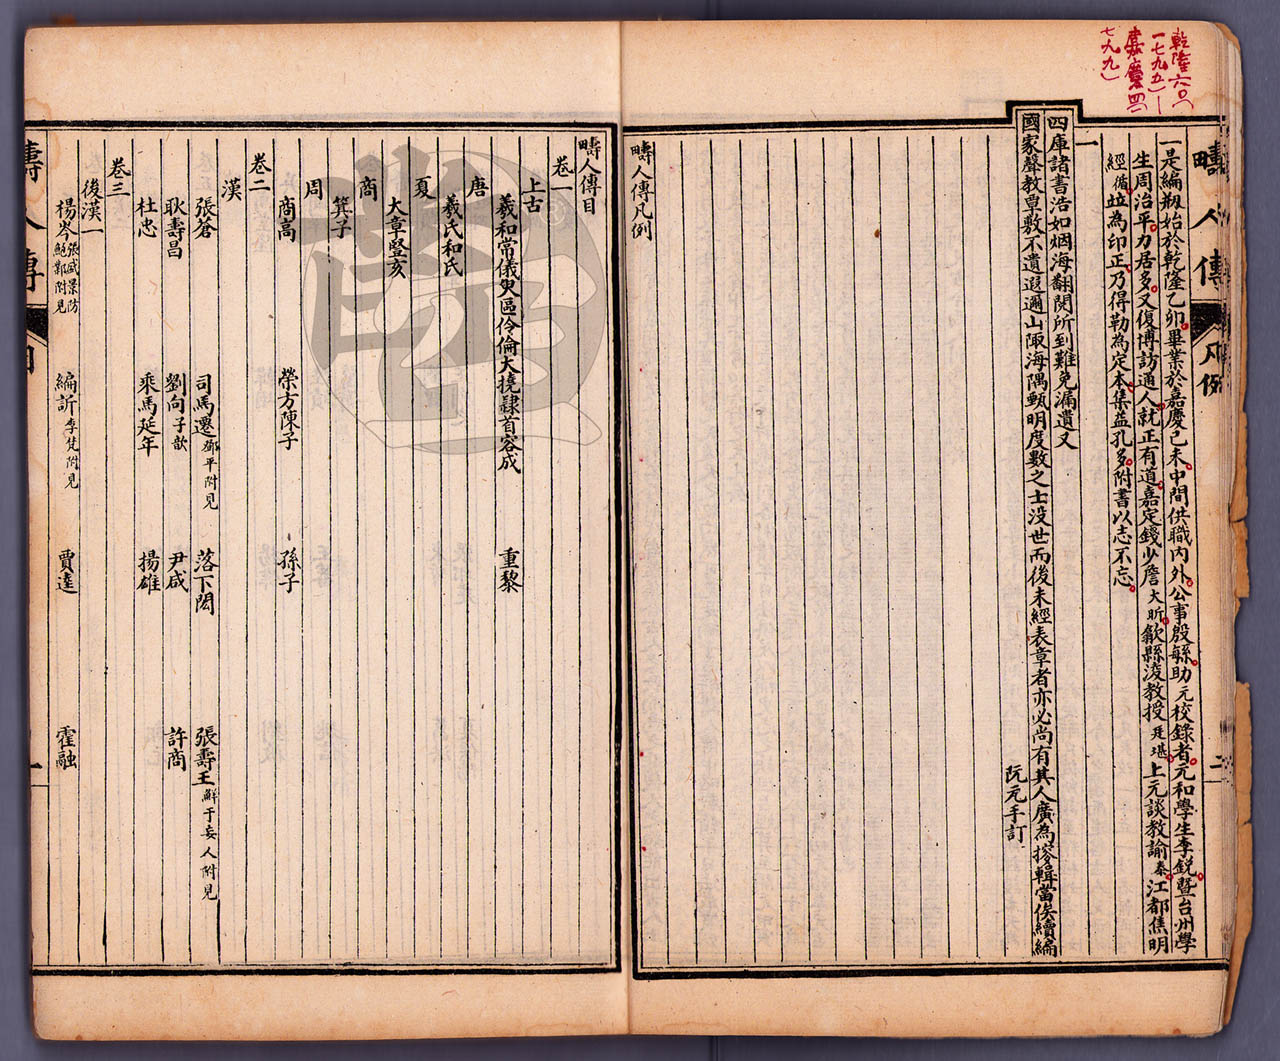 乾隆六〇(
一七九五)—
嘉慶四(一
七九九)
疇人傳 凡例 二
一是編㓞始於乾隆乙卯畢業於嘉慶己未中間供職內外公事殷繁助元校錄者元和學生李銳暨台州學
生周治平力居多又復博訪通人就正有道嘉定錢少詹大昕歙縣淩教授廷堪上元談教諭泰江都焦明
經循竝為印正乃得勒為定本集益孔多附書以志不忘
一
四庫諸書浩如烟海翻閱所到難免漏遺又
國家聲教覃敷不遺遐邇山陬海隅甄明度數之士没世而後未經表章者亦必尚有其人廣為搜輯當俟續編
阮元手訂
疇人傳凡例
疇人傳目
卷一
上古
羲和常儀臾區伶倫大撓隸首容成 重黎
唐
羲氏和氏
夏
大章豎亥
商
箕子
周
商高 榮方陳子 孫子
卷二
漢
張蒼 司馬遷鄧平附見 落下閎 張壽王鮮于妄人附見
耿壽昌 劉向子歆 尹咸 許商
杜忠 乘馬延年 揚雄
卷三
後漢一
楊岑張盛景防鮑鄴附見 編訢李梵附見 賈逵 霍融
疇人傳 目 一